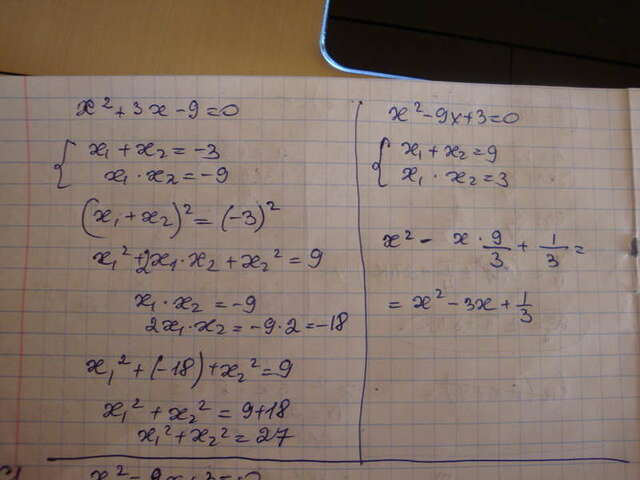 x² + 3x - 9 = 0
{ x₁ + x₂ = -3
x₁ · x₂ = -9
(x₁ + x₂)² = (-3)²
x₁² + 2x₁ · x₂ + x₂² = 9
x₁ · x₂ = -9
2x₁ · x₂ = -9 · 2 = -18
x₁² + (-18) + x₂² = 9
x₁² + x₂² = 9 + 18
x₁² + x₂² = 27
x² - 9x + 3 = 0
{ x₁ + x₂ = 9
x₁ · x₂ = 3
x² - x · 9/3 + 1/3 =
= x² - 3x + 1/3
x² - 9x + 3 = 0